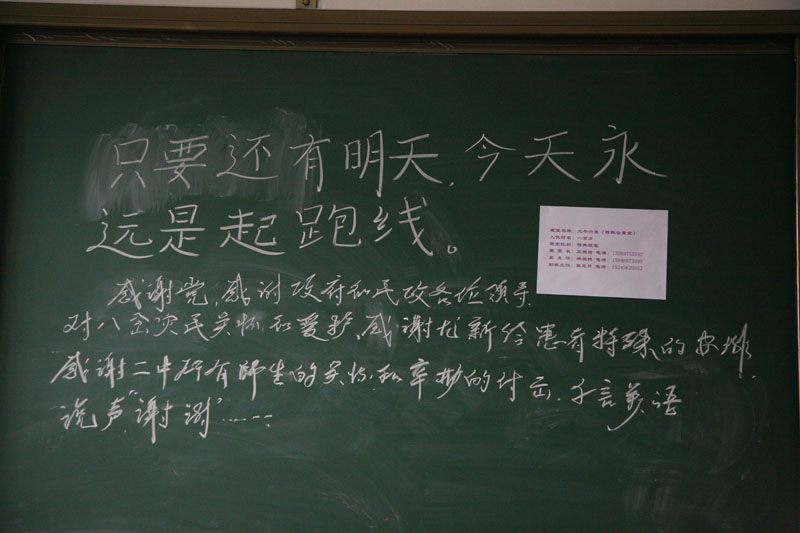 只要还有明天,今天永
远是起跑线。
感谢党,感谢政府和民政各位领导
对八岔灾民关怀和爱护、感谢尤新给患者特殊的安排
感谢二中所有师生的关怀和辛勤的付出.千言万语
说声"谢谢"……